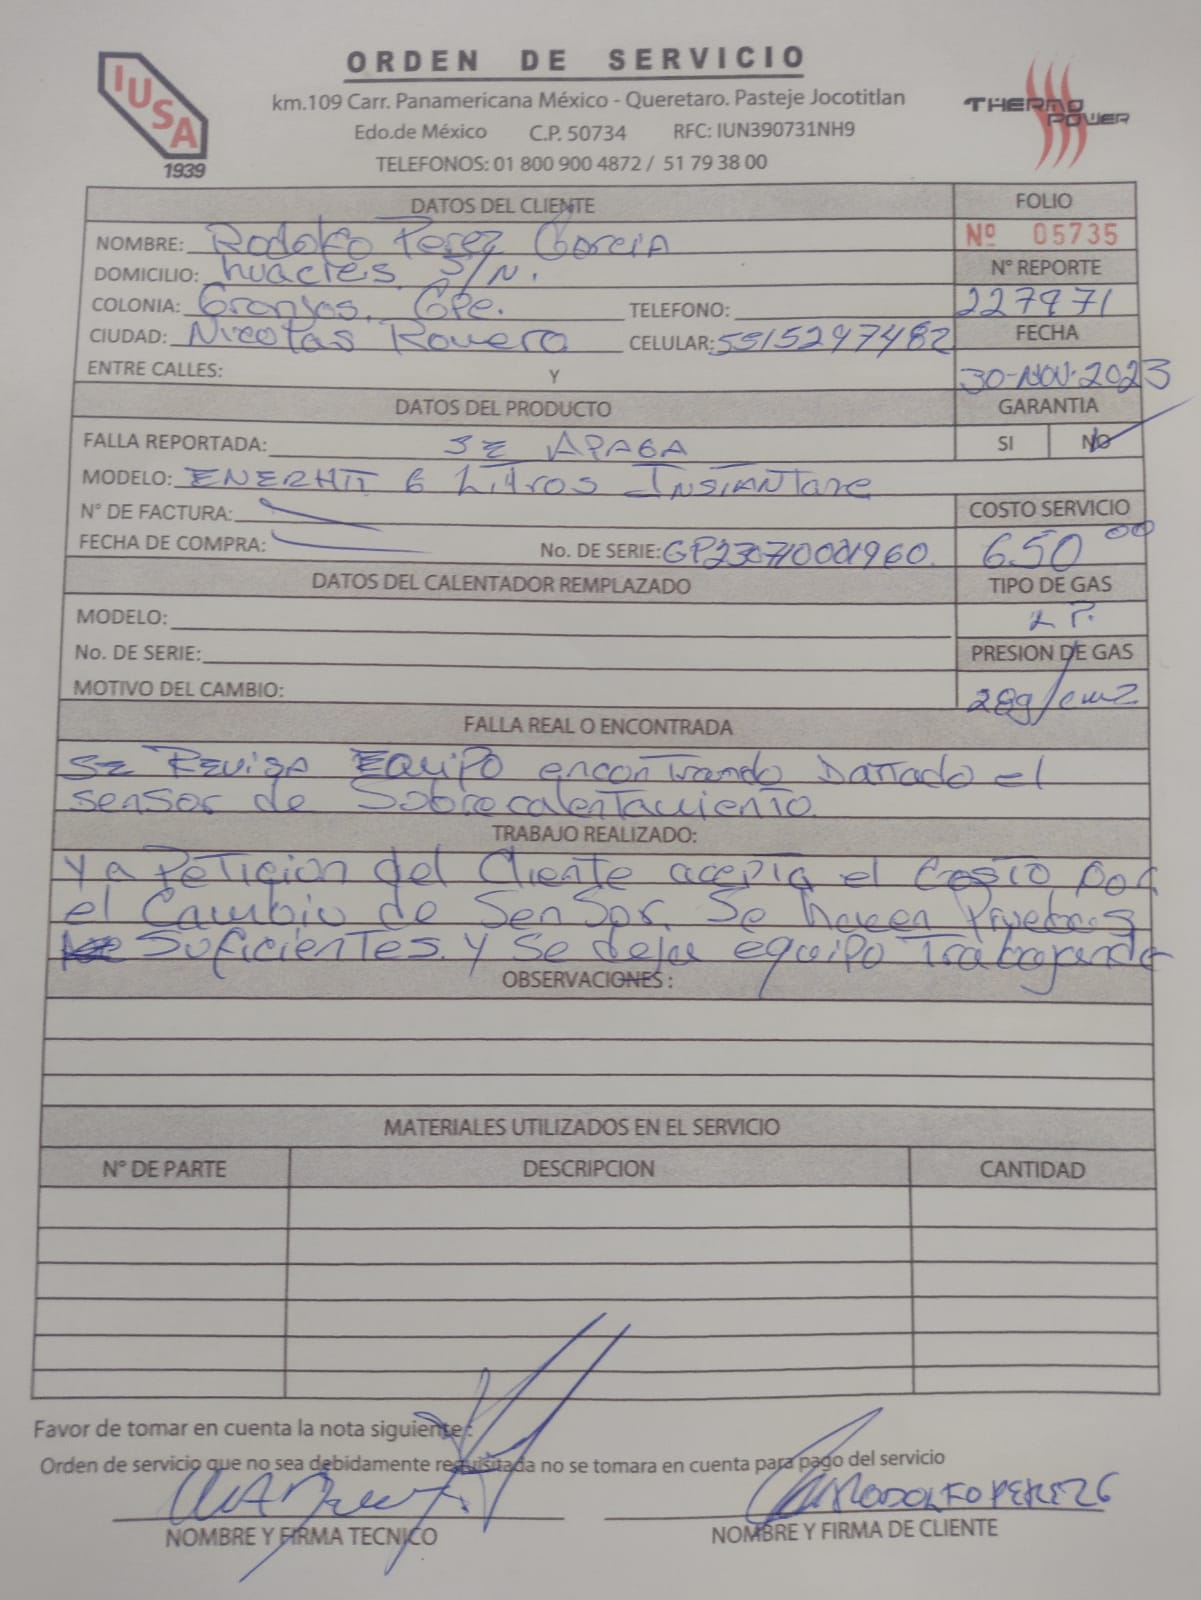 ORDEN DE SERVICIO
IUSA
1939
km.109 Carr. Panamericana México - Queretaro. Pasteje Jocotitlan
THERMO POWER
Edo.de México C.P. 50734 RFC: IUN390731NH9
TELEFONOS: 01 800 900 4872 / 51 79 38 00
DATOS DEL CLIENTE
FOLIO
NOMBRE: Rodolfo Perez Garcia
Nº 05735
DOMICILIO: huacles S/N.
N° REPORTE
COLONIA: Granjas. Gpe. TELEFONO:
227971
CIUDAD: Nicolas Romero CELULAR: 5515297482
FECHA
ENTRE CALLES: Y
30-NOV-2023
DATOS DEL PRODUCTO
GARANTIA
FALLA REPORTADA: SE APAGA
SI NO
MODELO: ENERHIT 6 Litros Instantane
N° DE FACTURA:
COSTO SERVICIO
FECHA DE COMPRA: No. DE SERIE: GP230710001960.
650 00
DATOS DEL CALENTADOR REMPLAZADO
TIPO DE GAS
MODELO:
L P.
No. DE SERIE:
PRESION DE GAS
MOTIVO DEL CAMBIO:
28g/cm2
FALLA REAL O ENCONTRADA
SE Revisa EQUIPO encontrando Dañado el
sensor de Sobrecalentamiento.
TRABAJO REALIZADO:
Y a Petición del Cliente acepta el Costo por
el Cambio de SenSor. Se hacen Pruebas
Suficientes. Y Se deja equipo Trabajando
OBSERVACIONES :
MATERIALES UTILIZADOS EN EL SERVICIO
N° DE PARTE DESCRIPCION CANTIDAD
Favor de tomar en cuenta la nota siguiente :
Orden de servicio que no sea debidamente requisitada no se tomara en cuenta para pago del servicio
RODOLFO PEREZ G
NOMBRE Y FIRMA TECNICO
NOMBRE Y FIRMA DE CLIENTE